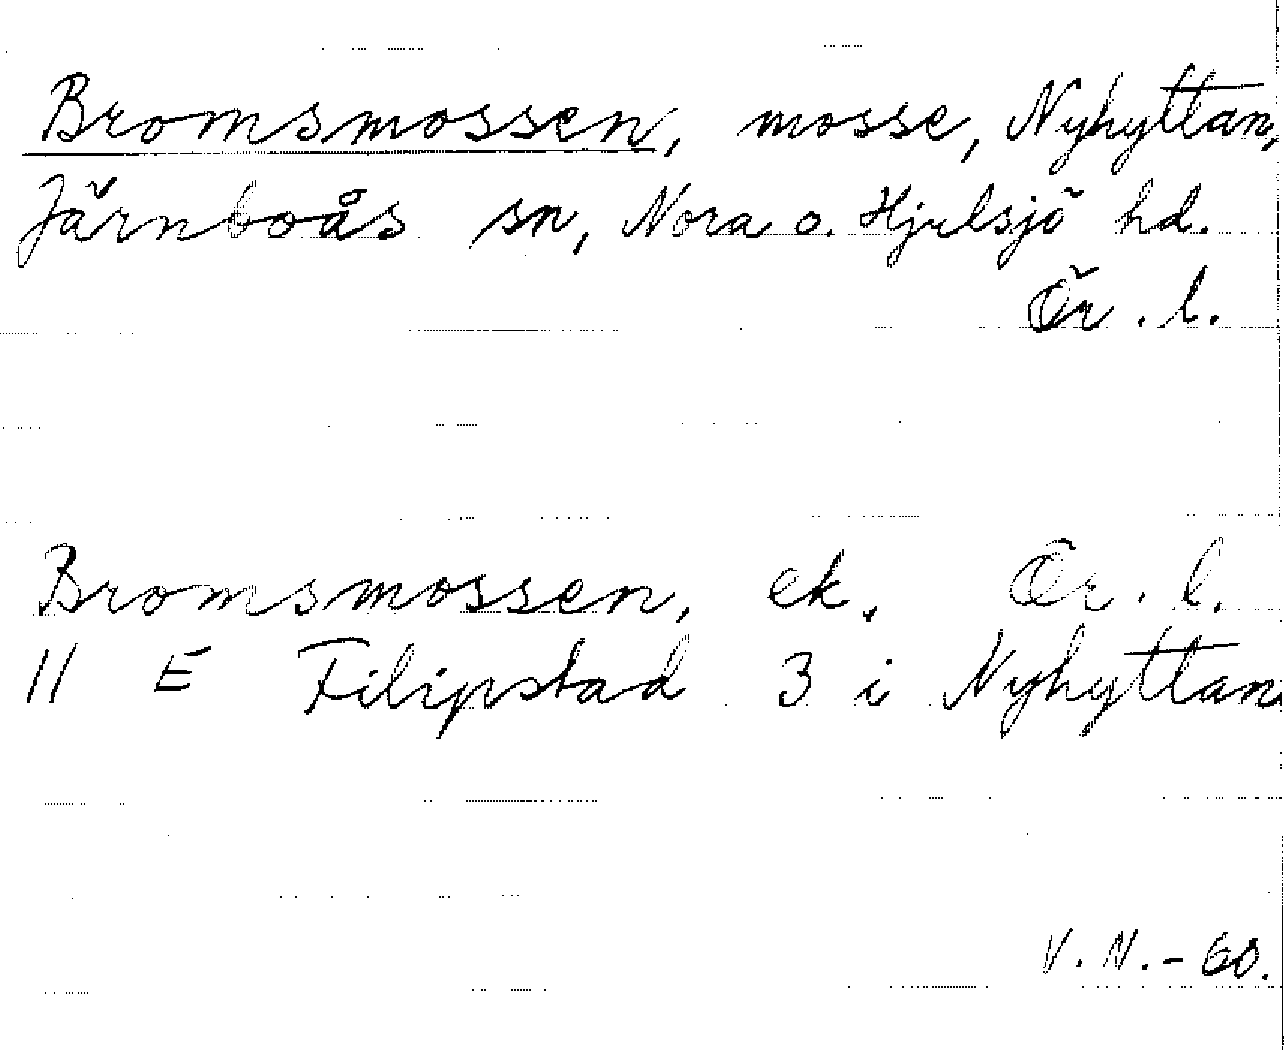 Bromsmossen, mosse, Nyhyttan,
Järnboås sn, Nora o. Hjulsjö hd.
Ör. l.
Bromsmossen, ek. Ör. l.
11 E Filipstad 3 i Nyhyttan
V. N. - 60.